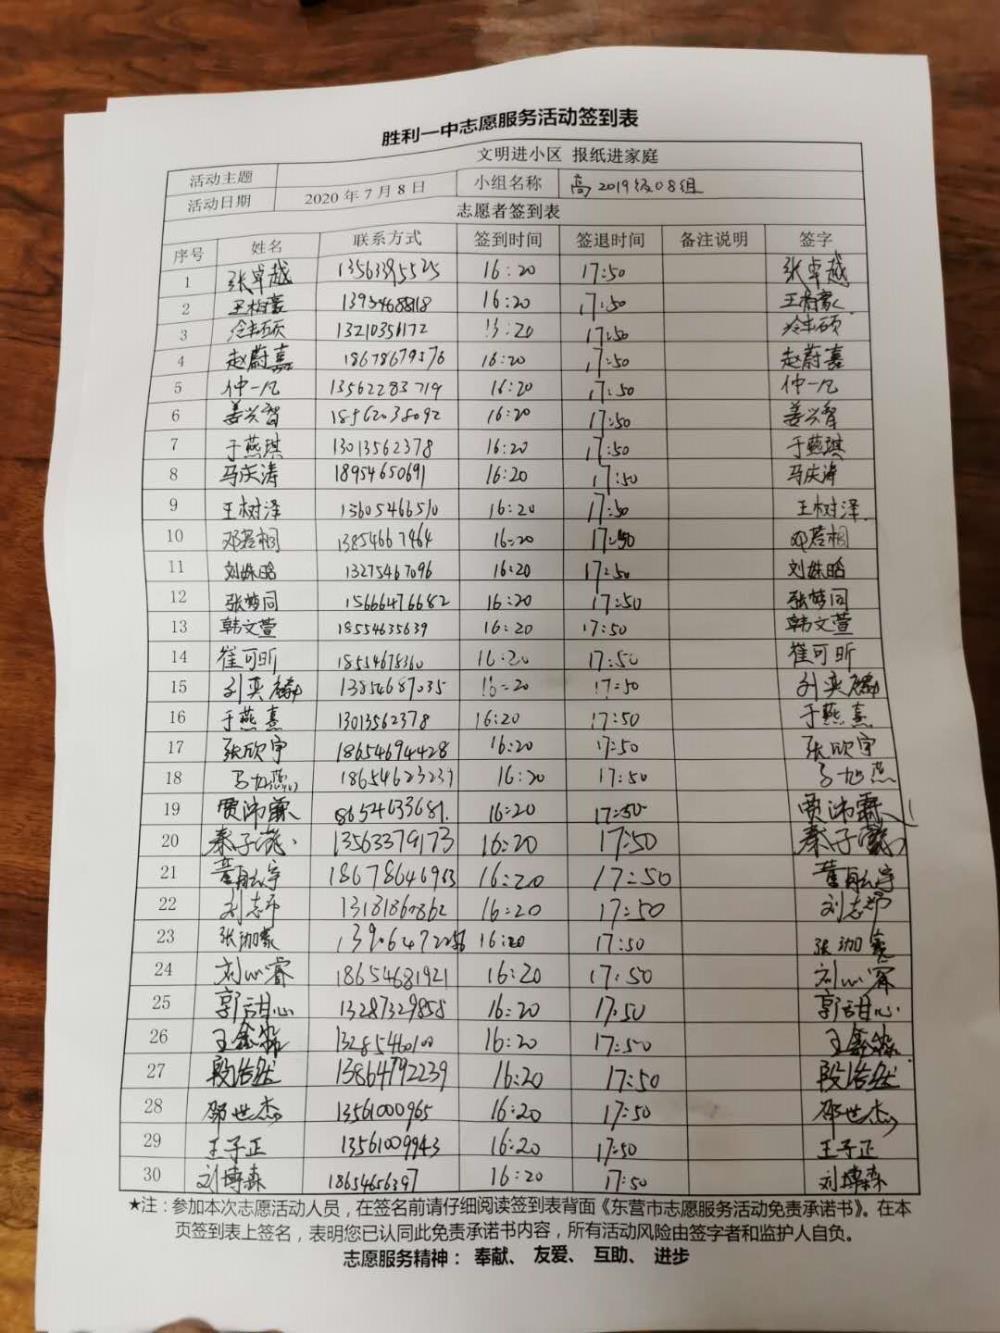 胜利一中志愿服务活动签到表
活动主题 文明进小区 报纸进家庭
活动日期 2020年7月8日 小组名称 高2019级08组
志愿者签到表
序号 姓名 联系方式 签到时间 签退时间 备注说明 签字
1 张卓越 13563395525 16:20 17:50 张卓越
2 16:20 17:50
3 16:20 17:50
4 赵蔚嘉 18678679576 16:20 17:50 赵蔚嘉
5 仲一凡 13562283719 16:20 17:50 仲一凡
6 姜兴智 18562038092 16:20 17:50 姜兴智
7 于燕琪 13013562378 16:20 17:50 于燕琪
8 马庆涛 18954650691 16:20 17:50 马庆涛
9 王树泽 13605466510 16:20 17:50 王树泽
10 邓若桐 13854667464 16:20 17:50 邓若桐
11 刘姝晗 13275467096 16:20 17:50 刘姝晗
12 张梦同 15666476682 16:20 17:50 张梦同
13 韩文萱 18554635639 16:20 17:50 韩文萱
14 崔可昕 18554678360 16:20 17:50 崔可昕
15 刘奕麟 13854687035 16:20 17:50 刘奕麟
16 于燕熹 13013562378 16:20 17:50 于燕熹
17 张欣宇 18654694428 16:20 17:50 张欣宇
18 马旭燕 18654623237 16:20 17:50 马旭燕
19 贾沛霖 8654633681 16:20 17:50 贾沛霖
20 13563379173 16:20 17:50
21 16:20 17:50
22 刘志苏 13181860862 16:20 17:50 刘志苏
23 16:20 17:50
24 刘心睿 18654681921 16:20 17:50 刘心睿
25 郭甜心 13287329858 16:20 17:50 郭甜心
26 王鑫淼 13285460100 16:20 17:50 王鑫淼
27 段浩然 13864792239 16:20 17:50 段浩然
28 邵世杰 13561000965 16:20 17:50 邵世杰
29 王子正 13561009943 16:20 17:50 王子正
30 刘博森 18654656397 16:20 17:50 刘博森
★注：参加本次志愿活动人员，在签名前请仔细阅读签到表背面《东营市志愿服务活动免责承诺书》。在本
页签到表上签名，表明您已认同此免责承诺书内容，所有活动风险由签字者和监护人自负。
志愿服务精神： 奉献、 友爱、 互助、 进步